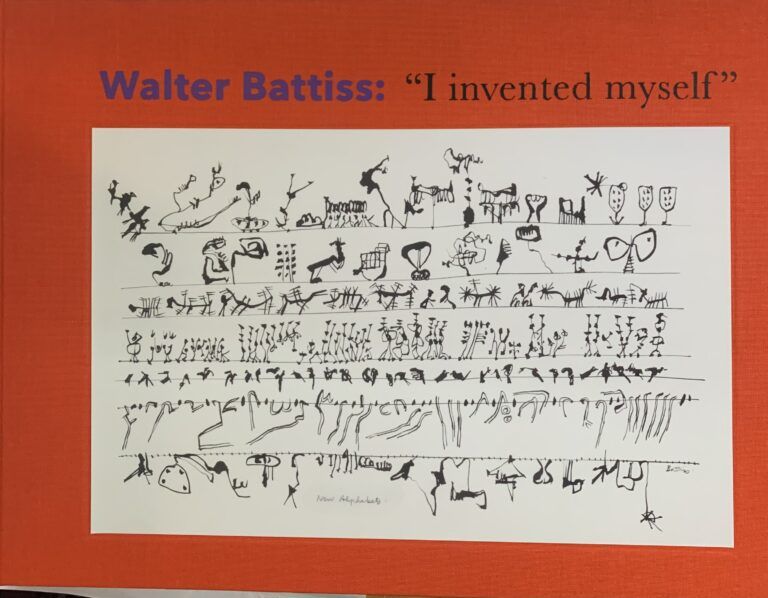 Walter Battiss: “I invented myself”
New Alphabets.
Battiss